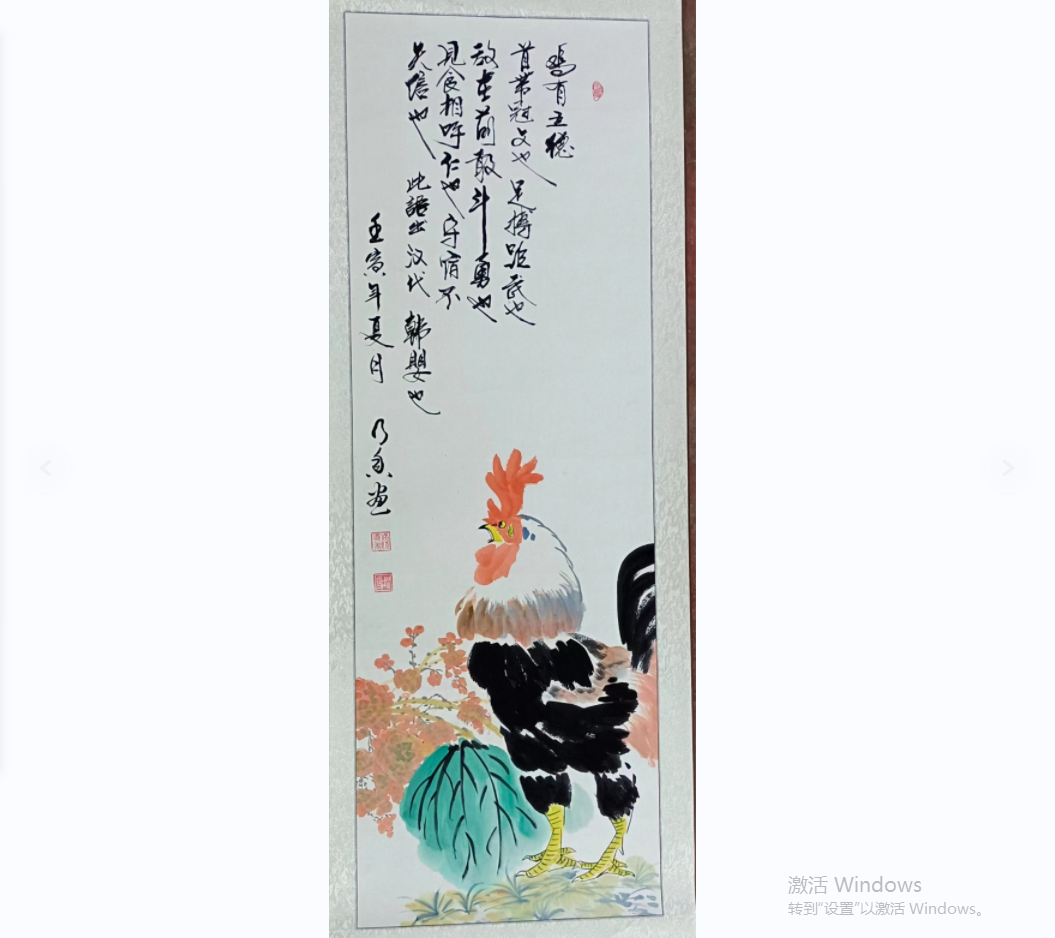 鸡有五德
首带冠文也 足搏距武也
敌在前敢斗勇也
见食相呼仁也守信不
失信也 此语出汉代 韩婴也
壬寅年夏月 乃香画
激活 Windows
转到“设置”以激活 Windows。